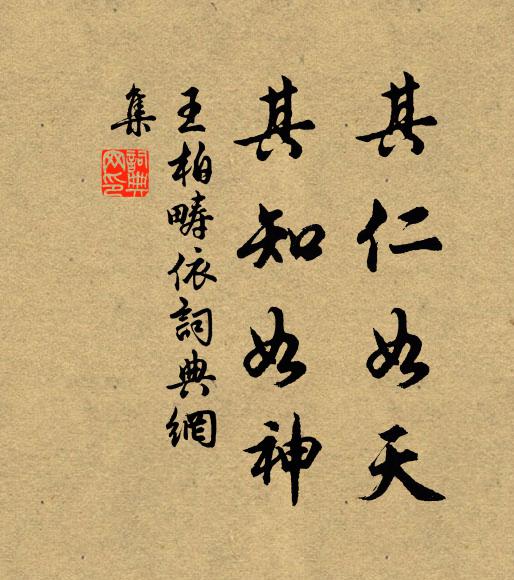 其仁如天
其知如神
王柏疇依詞典網
集
詞典
网印